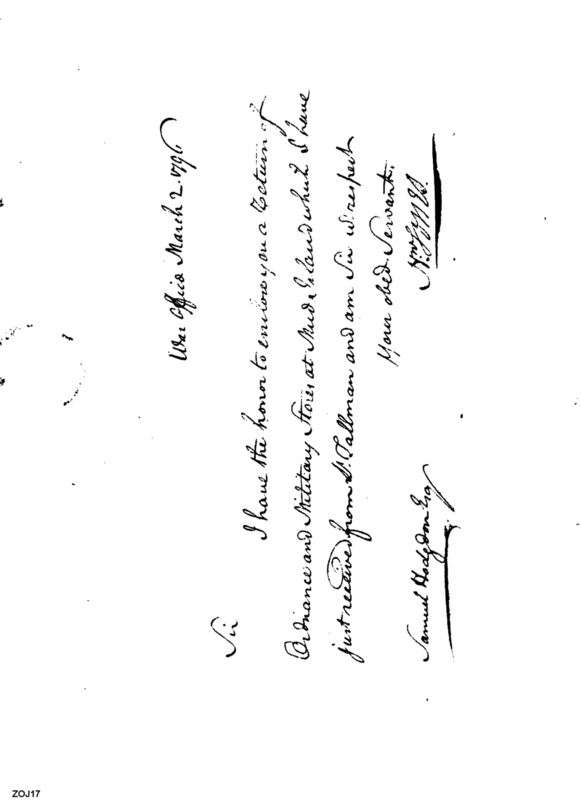 War Office March 2. 1796
Sir
I have the honor to enclose you a Return of
Ordnance and Military Stores at Mud Island which I have
just received from Lt. Tallman and am Sir wt. respect
Your obed. Servant.
Samuel Hodgdon Esq
ZOJ17